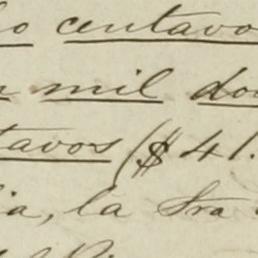 centavo
mil do
tavos ($41.
ia, la Sra